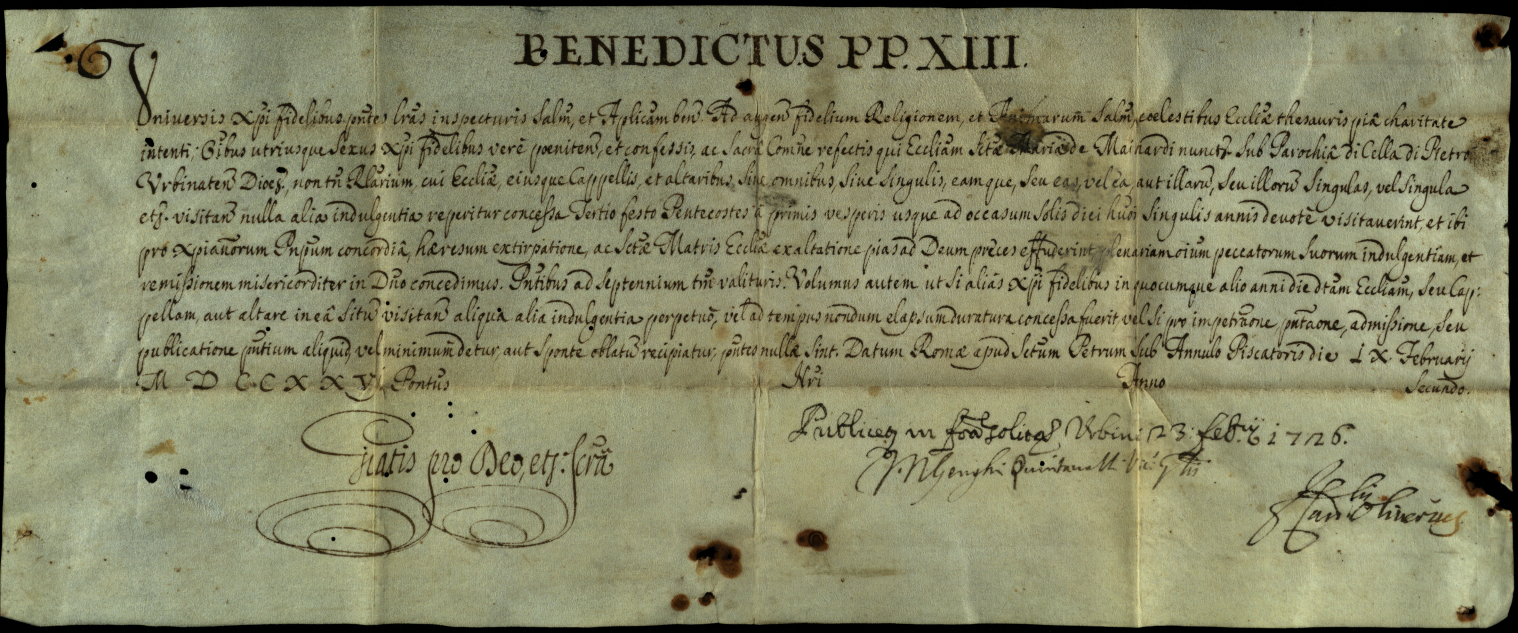 BENEDICTUS PP. XIII.
Vniversis Xpi fidelibus pntes lras inspecturis Salm, et Aplicam ben. Ad augen fidelium Religionem, et Animarum Salm, coelestibus Eccliæ thesauris piâ charitate
intenti, Oibus utriusque Sexus Xpi fidelibus verè poeniten, et confessis, ac Sacrâ Comne refectis qui Eccliam Stæ Mariæ de Mainardi nuncy. Sub Parochiâ di Cella di Pietro
Vrbinaten Dioec, non tn Rlarium, cui Eccliæ, eiusque Cappellis, et altaribus, sive omnibus, sive singulis, eamque, seu eas, vel ea, aut illarũ, seu illorũ singulas, vel singula
ets. visitan nulla alia indulgentia reperitur concessa Tertio festo Pentecostes à primis vesperis usque ad occasum solis diei hũoi singulis annis devotè visitaverint, et ibi
pro Xpianorum Pnpum concordiâ, hæresum extirpatione, ac Sctæ Matris Eccliæ exaltatione pias ad Deum preces effuderint, plenariam oium peccatorum suorum indulgentiam, et
remissionem misericorditer in Dno concedimus. Pntibus ad Septennium tm valituris. Volumus autem ut si aliàs Xpi fidelibus in quocumque alio anni die dtam Eccliam, seu Cap-
pellam, aut altare in eâ situ visitan aliqua alia indulgentia perpetuò, vel ad tempus nondum elapsum duratura concessa fuerit vel si pro impetraone, pntaone, admissione, seu
publicatione pntium aliquid, vel minimum detur, aut sponte oblatũ recipiatur, pntes nullæ sint. Datum Romæ apud Sctum Petrum Sub Annulo Piscatoris die IX. Februarij
M D C C X X VJ. Pontus Nri Anno Secundo.
Gratis pro Deo, ets: Scrã
Publicey in for solitos, Vrbini 23 febrij 1726.